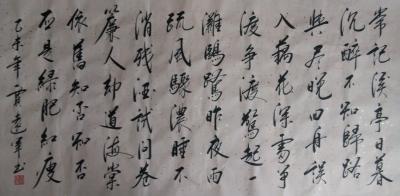 常記溪亭日暮
沉醉不知歸路
興盡晚回舟誤
入藕花深處爭
渡爭渡驚起一
灘鷗鷺昨夜雨
疏風驟濃睡不
消殘酒試問卷
簾人却道海棠
依舊知否知否
应是綠肥紅瘦
乙未年